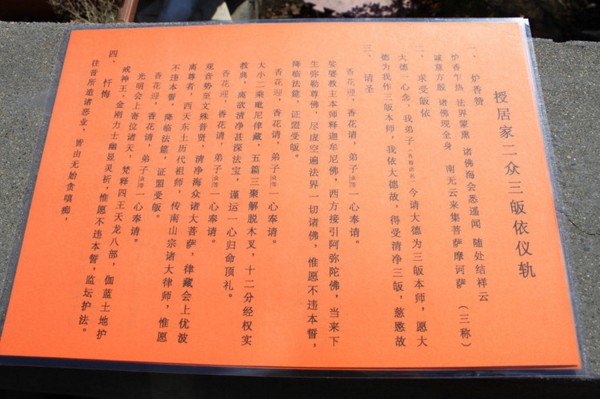 授居家二众三皈依仪轨
一、炉香赞
炉香乍热 法界蒙熏 诸佛海会悉遥闻 随处结祥云
诚意方殷 诸佛现全身 南无云来集菩萨摩诃萨（三称）
二、求受皈依
大德一心念，我弟子 今请大德为三皈本师，愿大
德为我作三皈本师，我依大德故，得受清净三皈，慈愍故
三、请圣
香花迎，香花请，弟子 一心奉请。
娑婆教主本师释迦牟尼佛，西方接引阿弥陀佛，当来下
生弥勒尊佛，尽虚空遍法界一切诸佛，惟愿不违本誓，
降临法筵，证盟受皈。
香花迎，香花请，弟子 一心奉请。
大小二乘毗尼律藏，五篇三聚解脱木叉，十二分经权实
教典，离欲清净甚深法宝，谨运一心归命顶礼。
香花迎，香花请，弟子 一心奉请。
观音势至文殊普贤，清净海众诸大菩萨，律藏会上优波
离尊者，西天东土历代祖师，传南山宗诸大律师，惟愿
不违本誓，降临法筵，证盟受皈。
香花迎，香花请，弟子 一心奉请。
光明会上寄位诸天，梵释四王天龙八部，伽蓝土地护
戒神王，金刚力士幽显灵祈，惟愿不违本誓，监坛护法。
四、忏悔
往昔所造诸恶业，皆由无始贪嗔痴，